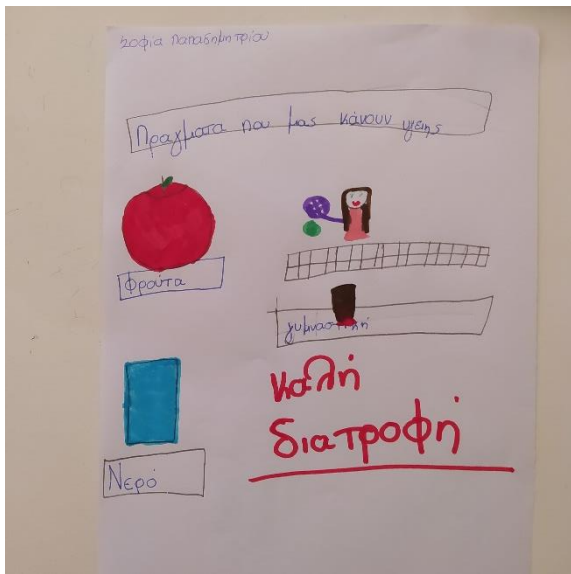 Σοφία Παπαδημητρίου
Πραγματα που μας κάνουν υγειης
φρούτα
γυμναστική
καλή
διατροφή
Νερό